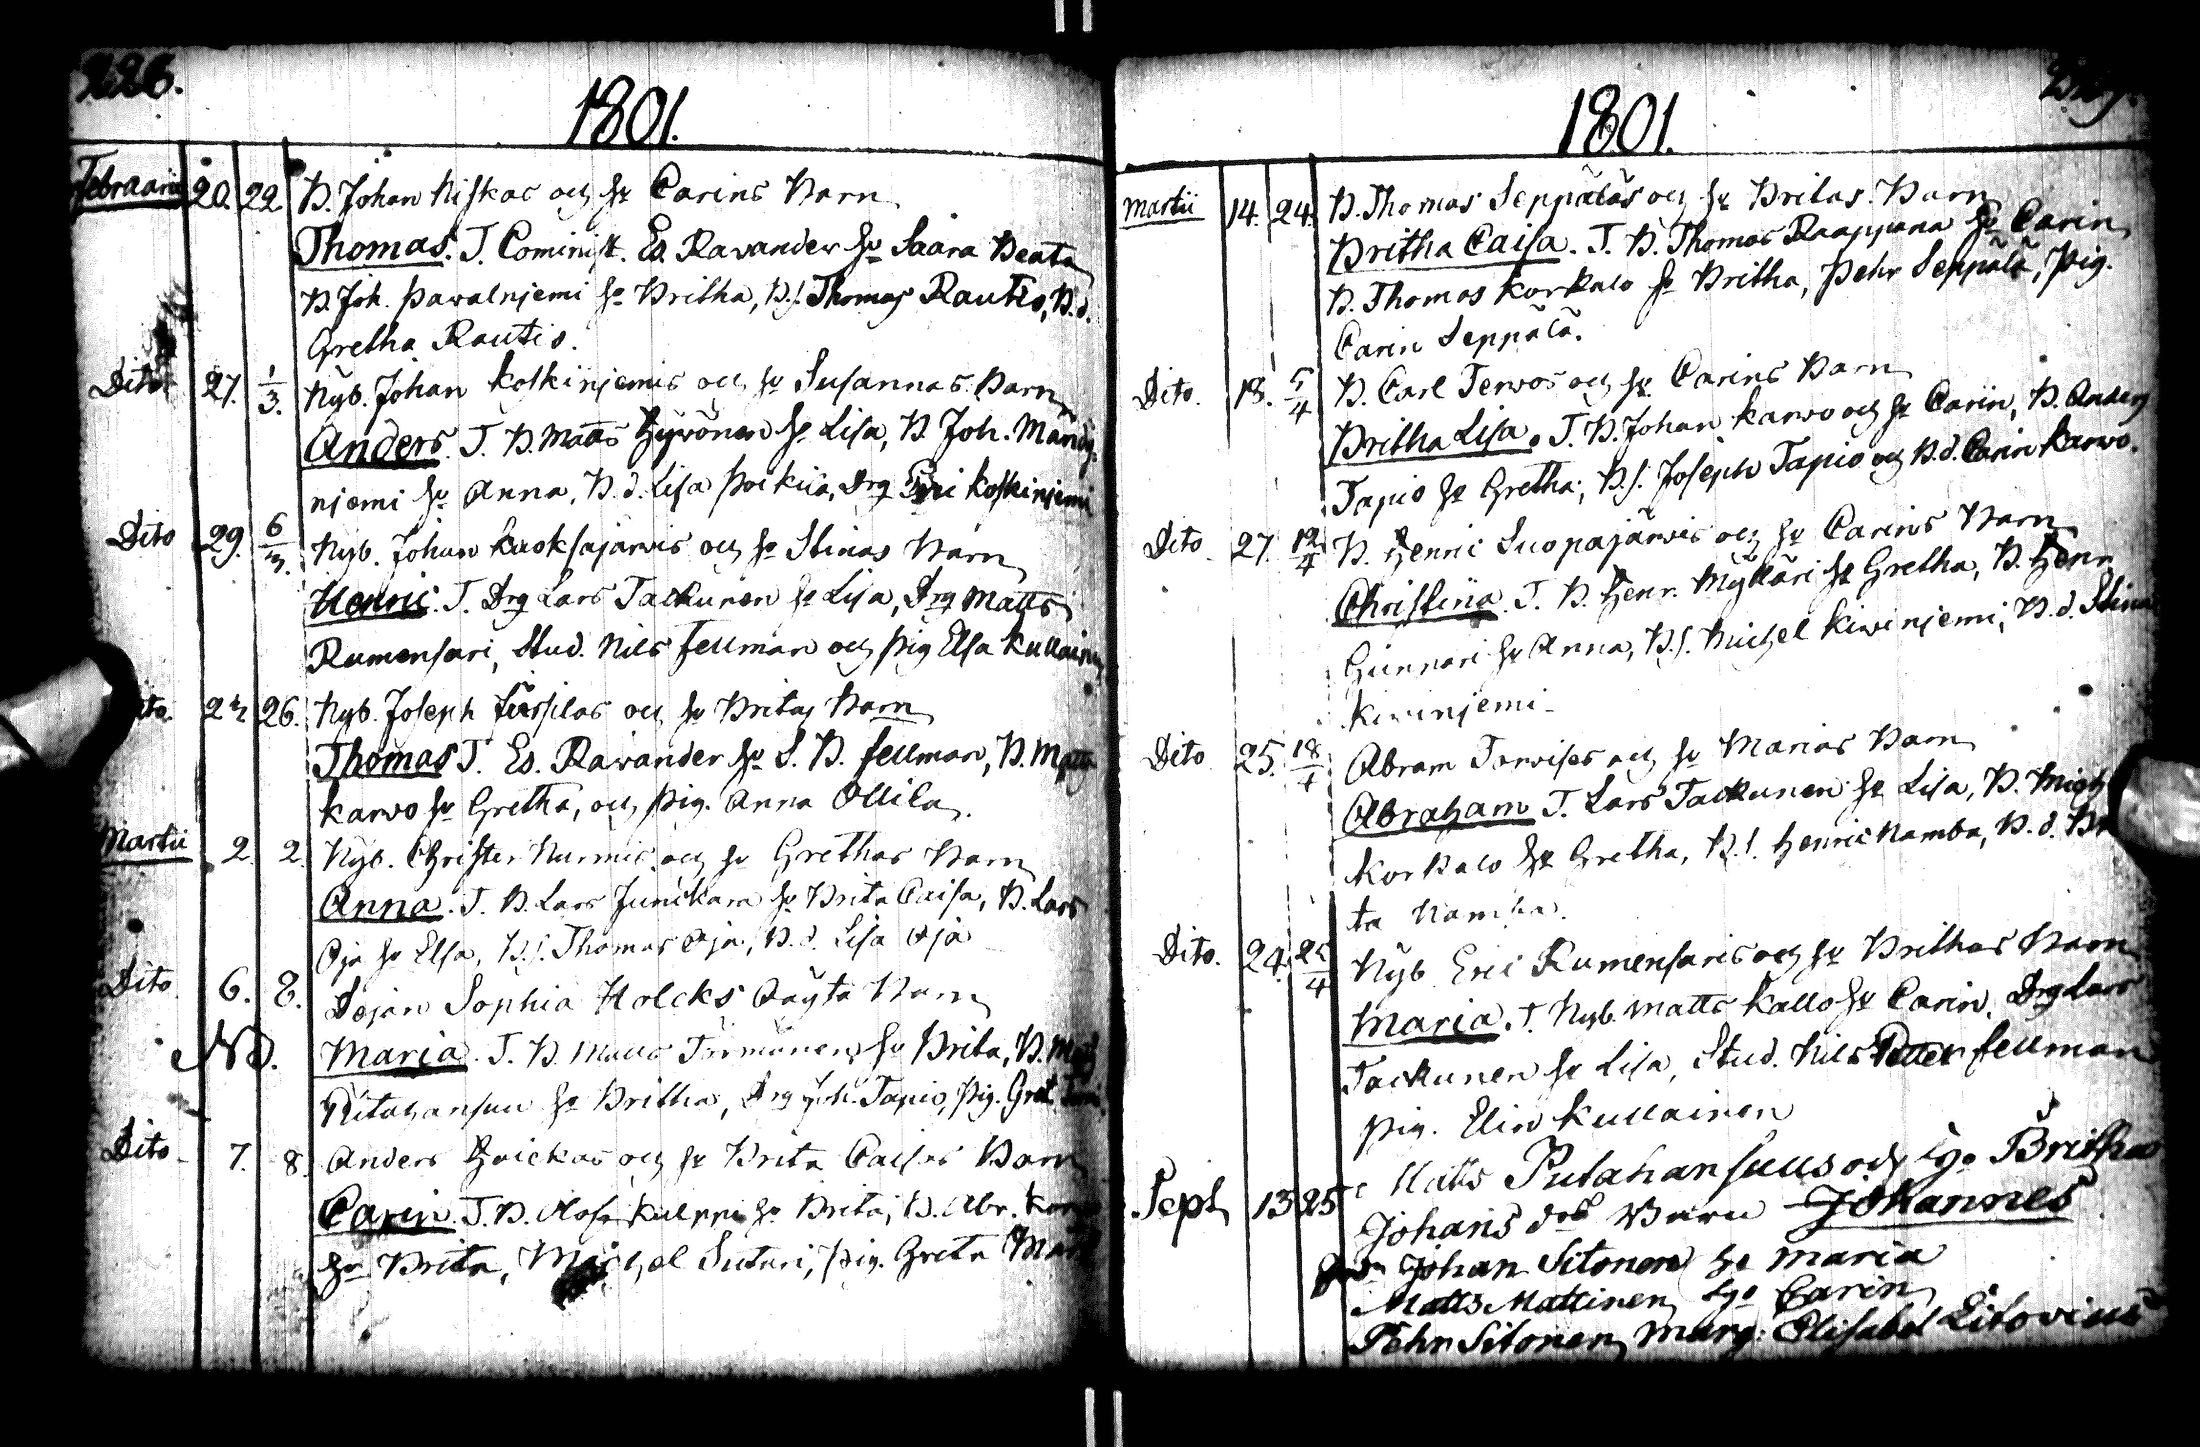 226.
1801.
Februarii 20. 22. B. Johan Niskas och H: Carins Barn
Thomas. T. Cominist. Es. Ravander H: Saara Beata
B. Joh. Pawalnjemi H: Britha, B.s. Thomas Rautio, B.d.
Gretha Rautio.
Dito 27. 1/3. Nyb. Johan Koskinjemis och H: Susannas Barn
Anders. T. B. Matts Hyvönen H: Lisa, B. Joh. Mändy-
njemi H: Anna, B.d. Lisa Pockila, Drg Eric Koskinjemi
Dito 29. 6/3. Nyb. Johan Kuoksajärwis och H: Stinas Barn
Henric. T. Drg Lars Tackunen H: Lisa, Drg Matts
Rumensari, Stud. Nils Fellman och Pig Elsa Kullainen
Dito. 24. 26. Nyb. Joseph och H: Britas Barn
Thomas T. Es. Ravander H: S. B. Fellman, B. Matts
Karwo H: Gretha, och Pig. Anna Ollila.
Martii 2. 2. Nyb. Christer Nurmis och H: Grethas Barn
Anna. T. B. Lars Junckara H: Brita Caisa, B. Lars
Oja H: Elsa, B.s. Thomas Oja, B.d. Lisa Oja
Dito 6. 8. Dejan Sophia Holcks Oägta Barn
Nb. Maria. T. B. Matts Törmänen H: Brita, B.
Pitahansuu H: Britha, Drg Joh. Tapio, Pig. Gret.
Dito 7. 8. Anders och H: Brita Caisas Barn
Carin. T. B. Olof Kulppi H: Brita, B. Abr.
H: Brita, Michel Suturi, Pig. Greta
1801.
Martii 14. 24. B. Thomas Seppäläs och H: Britas Barn
Britha Caisa. T. B. Thomas Raappana H: Carin
B. Thomas Korkalo H: Britha, Pehr Seppälä, Pig.
Carin Seppälä.
Dito. 18. 5/4 B. Carl Tervos och H: Carins Barn
Britha Lisa. T. B. Johan Karwo och H: Carin, B. Anders
Tapio H: Gretha, B.s. Joseph Tapio och B.d. Carin Karwo.
Dito 27. 12/4 B. Henric Suopajärwis och H: Carins Barn
Christina. T. B. Henr. Myllari H: Gretha, B. Henr.
Gunnari H: Anna, B.s. Michel Kiwinjemi, B.d. Stina
Kiwinjemi.
Dito 25. 18/4 Abram Torwises och H: Marias Barn
Abraham T. Lars Tackunen H: Lisa, B. Mich
Korkalo H: Gretha, B.s. Henric Namba, B.d. Br
ta Namba.
Dito. 24. 25/4 Nyb Eric Rumensaris och H: Brithas Barn
Maria. T. Nyb. Matts Kallo H: Carin. Drg Lars
Tackunen H: Lisa, Stud. Nils Petter Fellman
Pig. Elin Kullainen
Sept 13 25 Matts Putahansuus och Hu Britha
Johans Barn Johannes
Johan Sitonen H: Maria
Matts Mattinen Carin
Pehr Sitonen, Marg: Elisabet Litovius